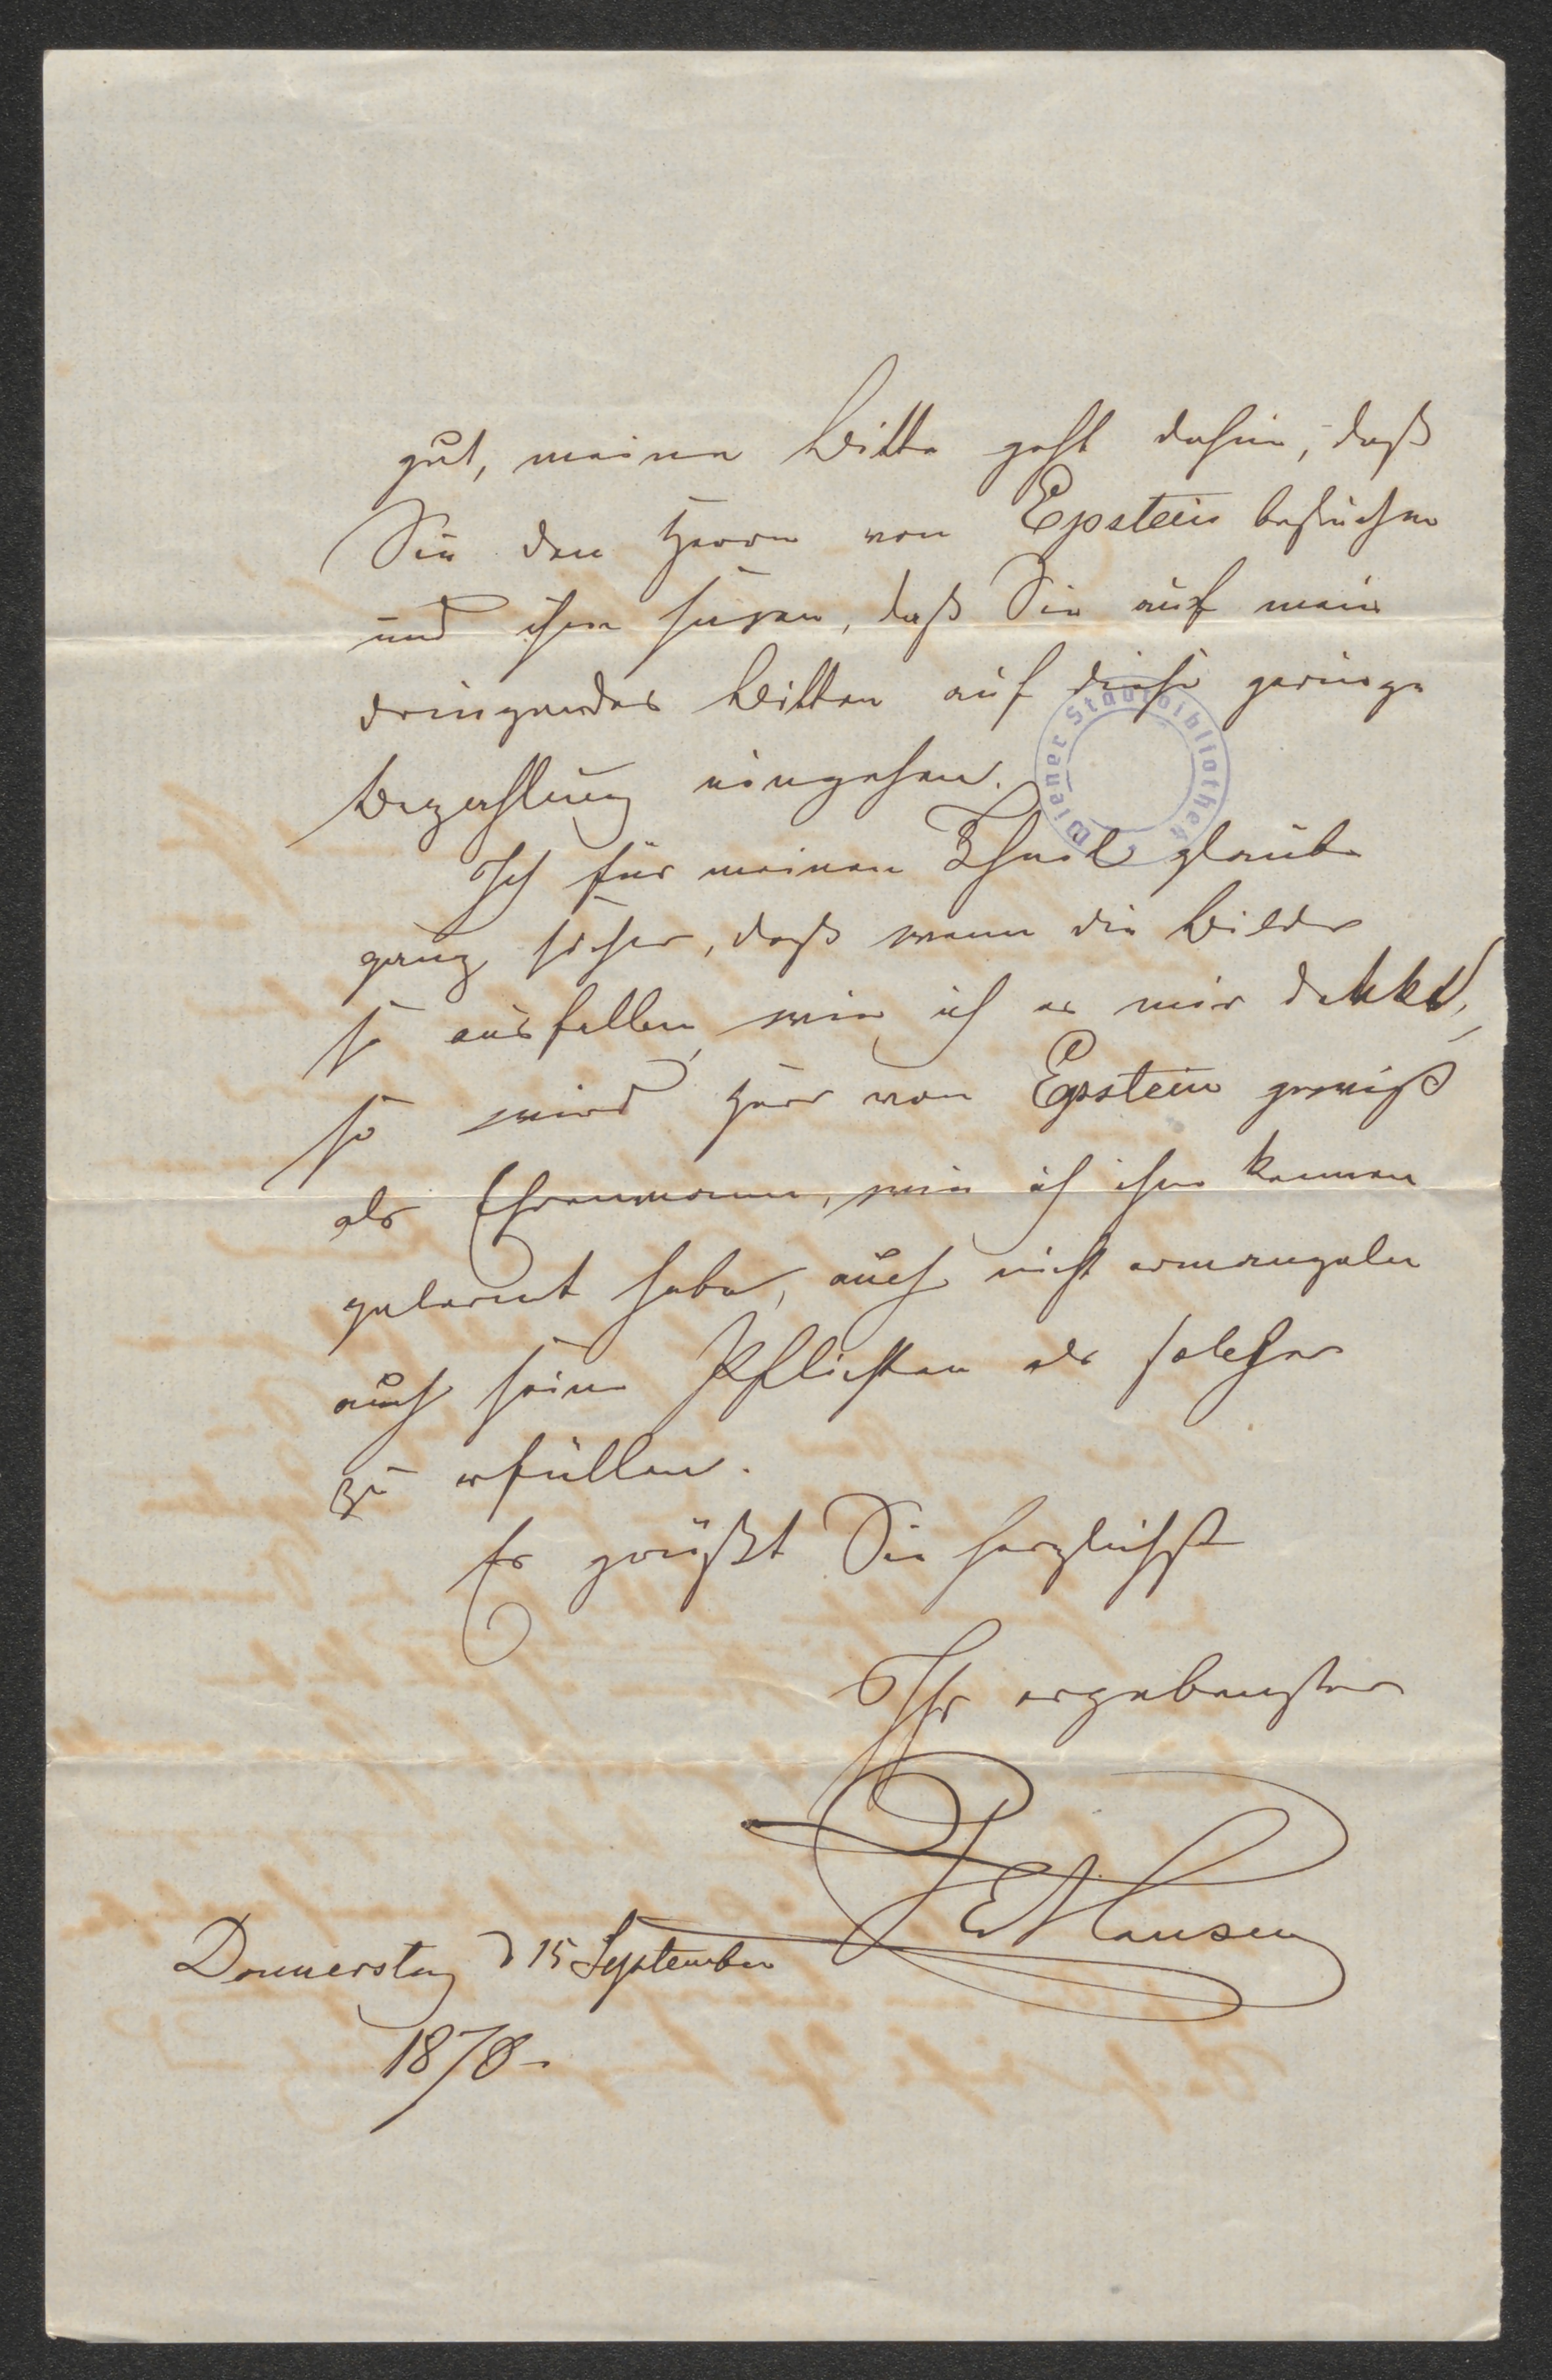 gut, meine Bitte geht dahin, daß
Sie den Herrn von Epstein besuchen
und ihm sagen, daß Sie auf mein
dringendes Bitten auf diese geringe
Bezahlung eingehen.
Wiener Stadtbibliothek
Ich für meinen Theil glaube
ganz sicher, daß wenn die Bilder
so ausfallen, wie ich es mir denke,
so wird Herr von Epstein gewiß
als Ehrenmann, wie ich ihn kennen
gelernt habe, auch nicht ermangeln
auch seine Pflichten als solcher
zu erfüllen.
Es grüßt Sie herzlichst
Ihr ergebenster
Hansen
Donnerstag d 15 September
1870